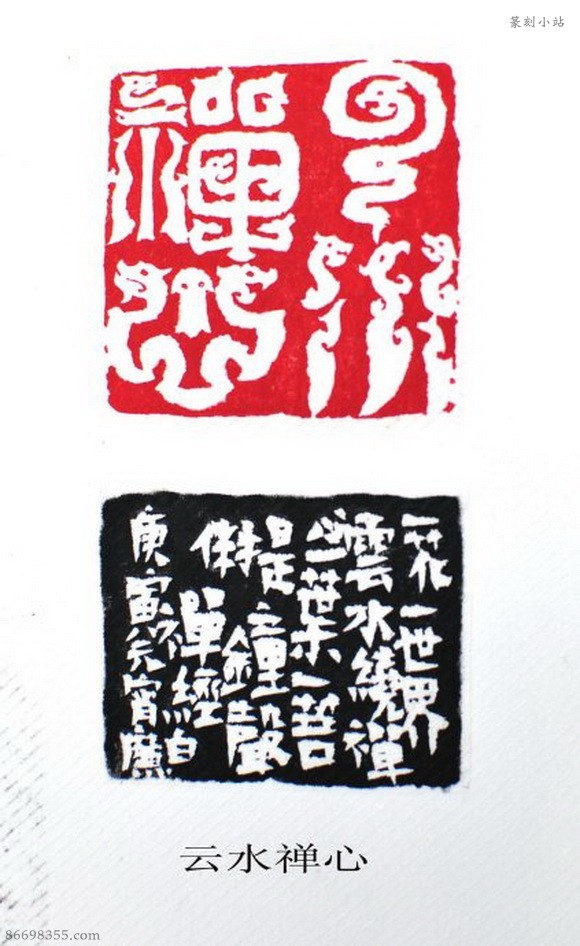 篆刻小站
云水禅心
一花一世界
雲水繞禅
一葉一菩
提鐘聲
經
庚寅元宵
云水禅心
86698355.com